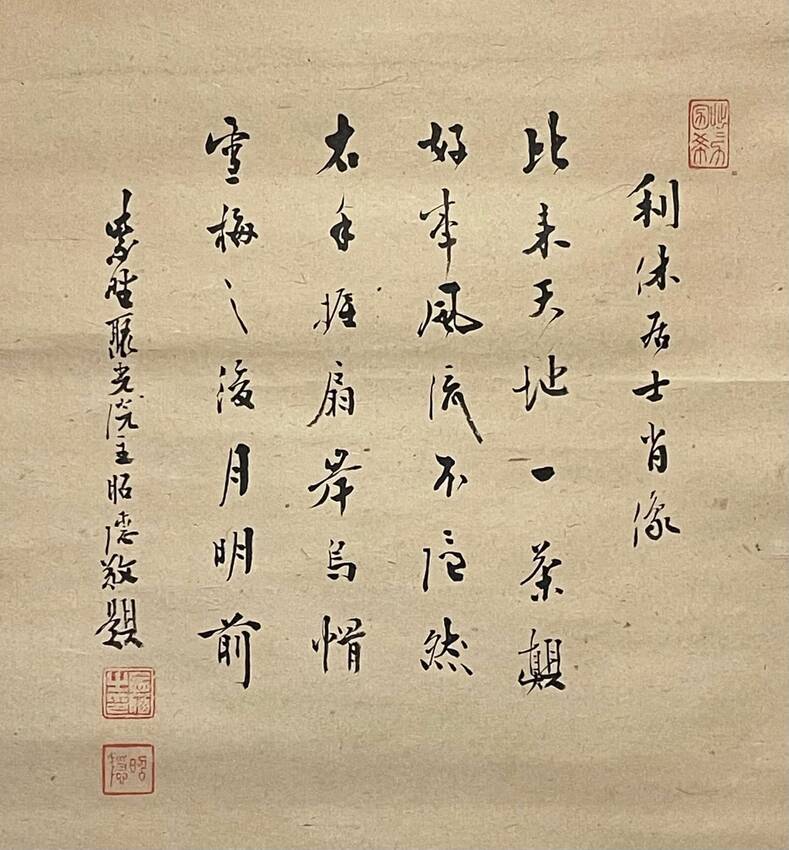 利休居士肖像
比来天地一茶顛
好事風流不然
右手握扇岸烏帽
雪梅之後月明前
紫野聚光院主昭隠敬題